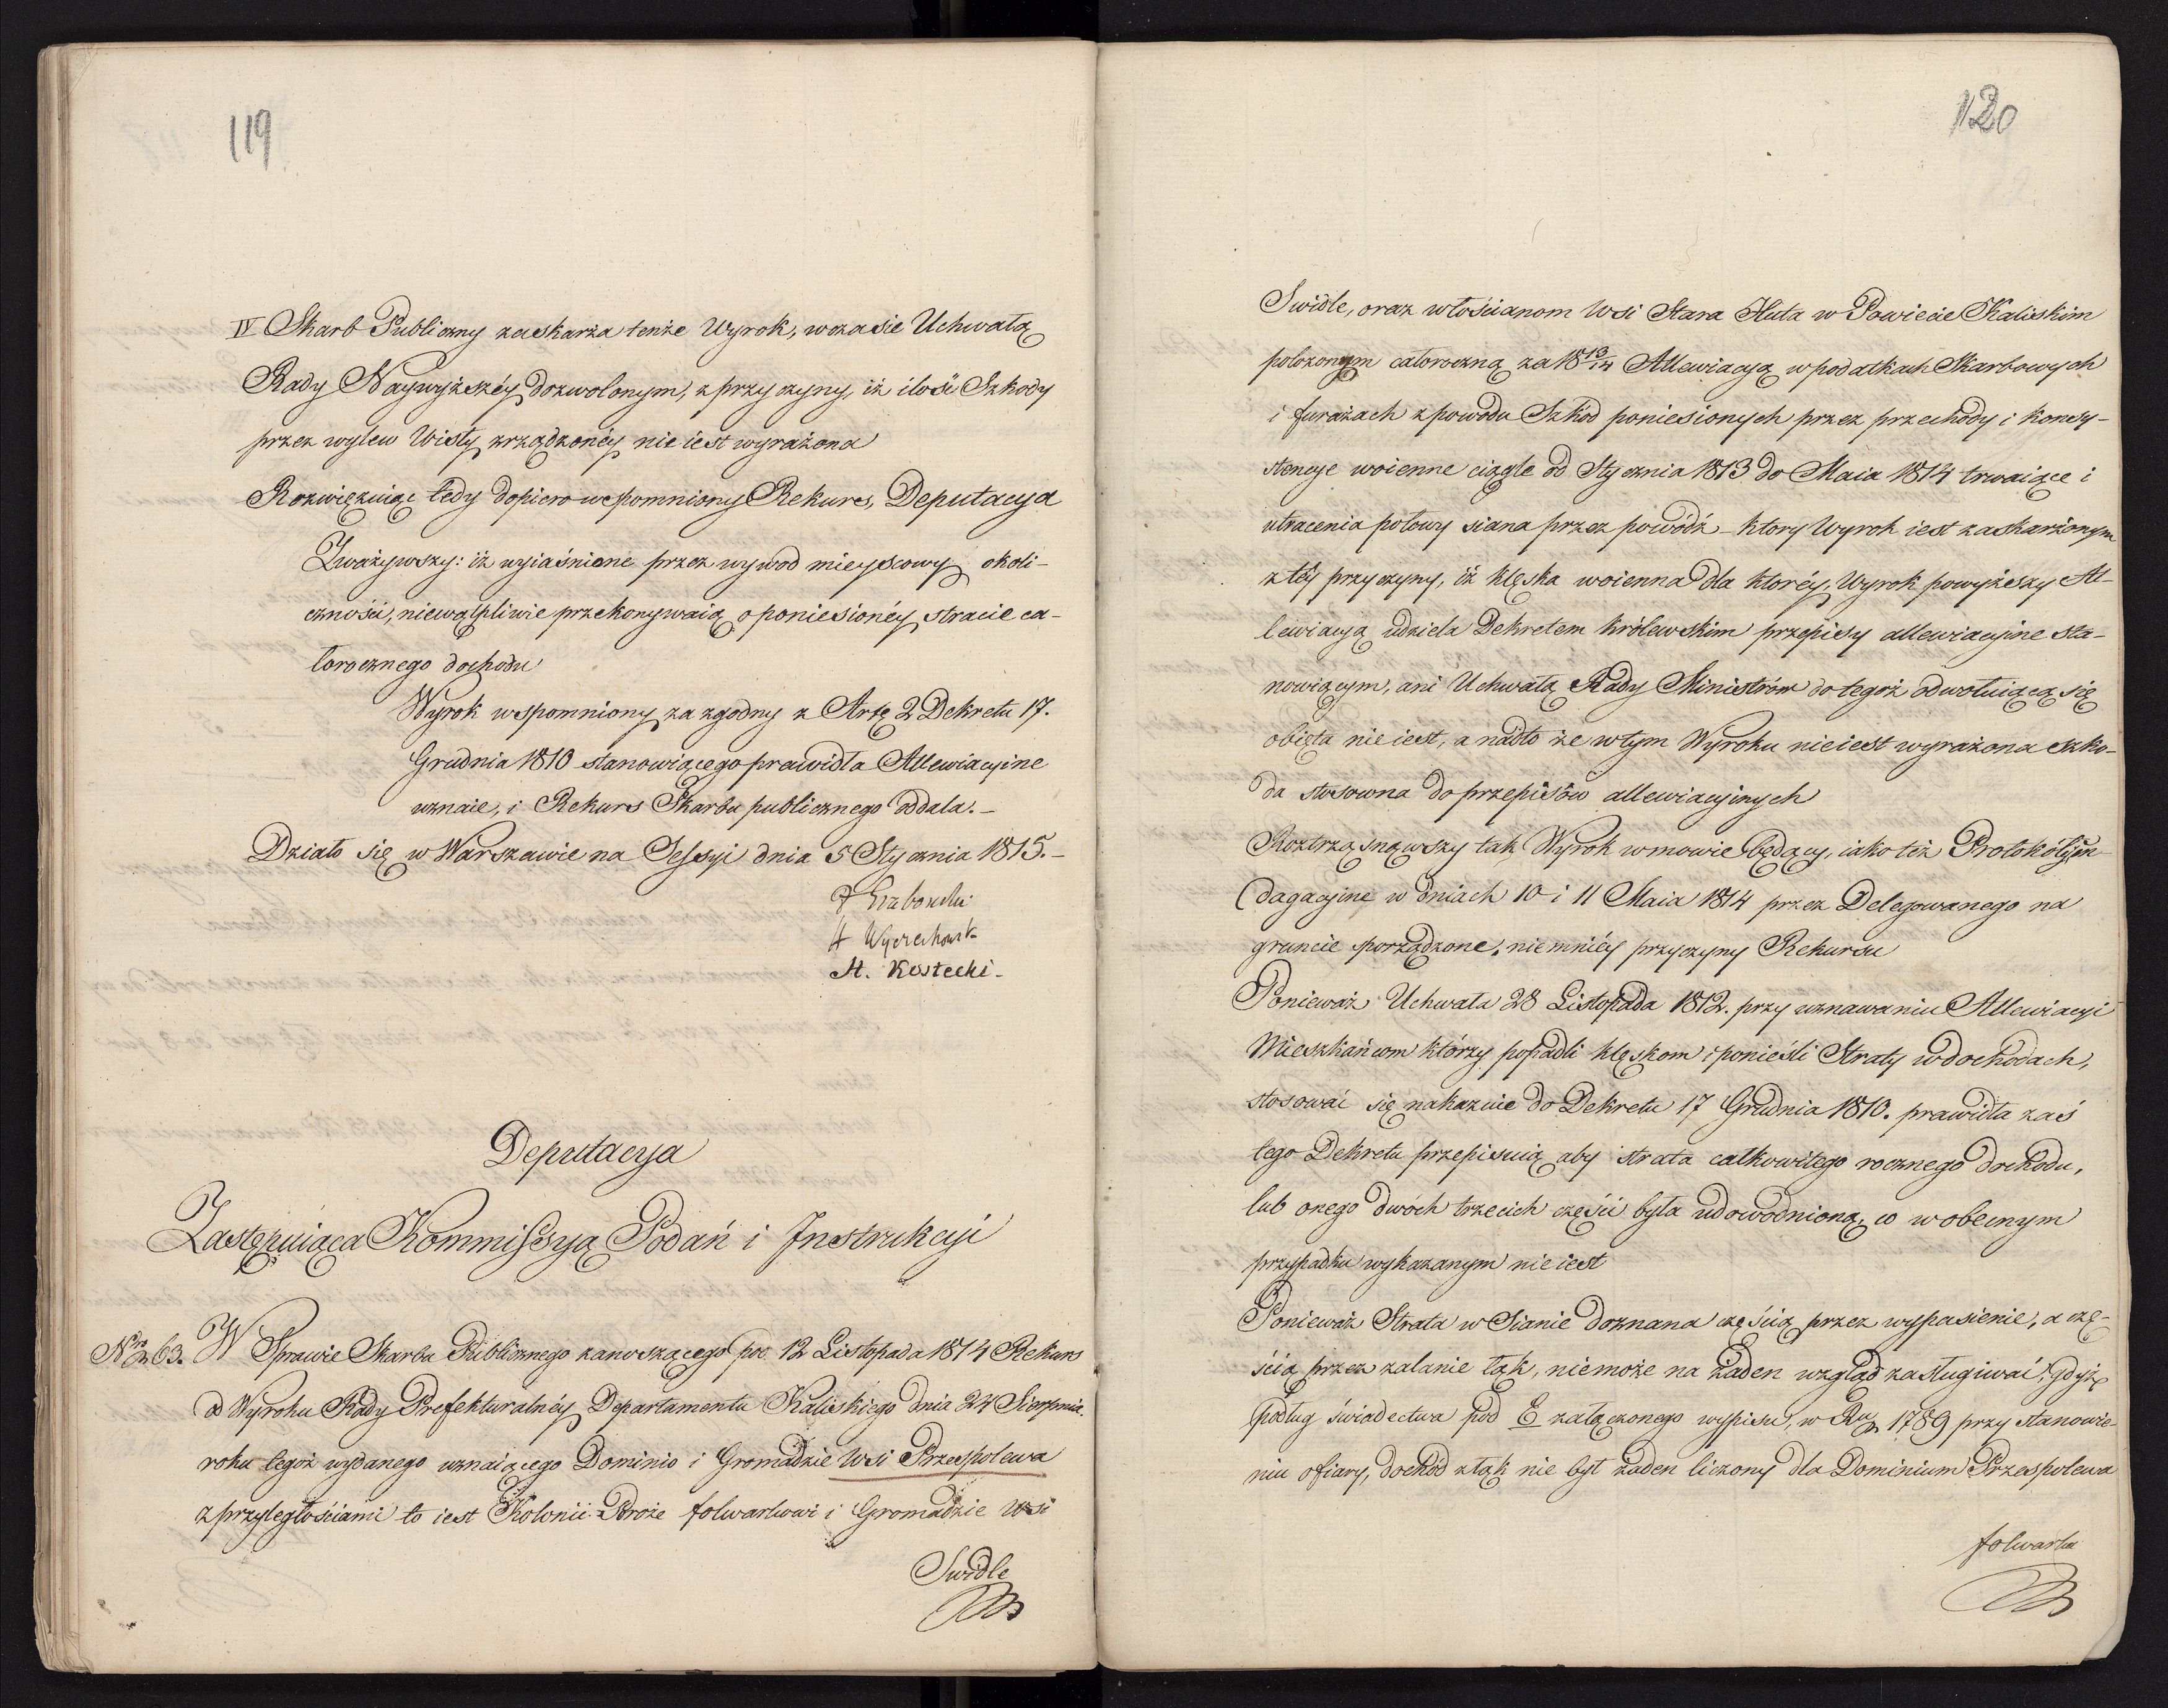 119
IV Skarb Publiczny zaskarża tenże Wyrok, w czasie Uchwałą
Rady Naywyższéy dozwolonym, z przyczyny, iż ilość Szkody
przez wylew Wisły zrządzonéy nie iest wyrażona
Rozwięzuiąc tedy dopiero wspomniony Rekurs, Deputacya
Zważywszy: iż wyiaśnione przez wywod mieyscowy okoli-
czności, niewątpliwie przekonywaią o poniesionéy stracie ca-
łorocznego dochodu
Wyrok wspomniony za zgodny z Artę 2 Dekretu 17.
Grudnia 1810 stanowiącego prawidła Allewiacyine
uznaie, i Rekurs Skarbu publicznego oddala. –
Działo się w Warszawie na Sessyi dnia 5 Stycznia 1815. –
Grabowski
Wyczechowsk
St. Kostecki –
Deputacya
Zastępuiąca Kommissyą Podań i Instrukcyi
Nro 63. W Sprawie Skarbu Publicznego zanoszącego pod 12 Listopada 1814 Rekurs
od Wyroku Rady Prefekturalnéy Departamentu Kaliskiego dnia 24 Sierpnia
roku tegoż wydanego uznaiącego Dominio i Gromadzie Wsi Przespolewa
z przyległościami to iest Kolonii Poroże folwarkowi i Gromadzie Wsi
Swidle
120
Swidle, oraz włościanom Wsi Stara Huta w Powiecie Kaliskim
położonym całoroczną za 18 13/14 Allewiacyą w podatkach Skarbowych
i furażach z powodu Szkód poniesionych przez przechody i konsy-
stencye woienne ciągle od Stycznia 1813 do Maia 1814 trwaiące i
utracenia połowy siana przez powódź – ktory Wyrok iest zaskarżonym
z téy przyczyny, iż klęska woienna dla któréy Wyrok powyższy Al-
lewiacyą udziela Dekretem Królewskim przepisy allewiacyine sta-
nowiącym, ani Uchwałą Rady Ministrów do tegoż odwołuiącą się
obięta nie iest, a nadto że w tym Wyroku nieiest wyrażona szko-
da stosowna do przepisów allewiacyinych
Roztrząsnąwszy tak Wyrok w mowie będący, iako też Protokóły in
dagacyine w dniach 10 i 11 Maia 1814 przez Delegowanego na
gruncie sporządzone, niemniéy przyczyny Rekursu
Ponieważ Uchwała 28 Listopada 1812. przy uznawaniu Allewiacyi
Mieszkańcom którzy popadli klęskom i ponieśli Straty w dochodach,
stosować się nakazuie do Dekretu 17 Grudnia 1810. prawidła zaś
tego Dekretu przepisuią aby strata całkowitego rocznego dochodu,
lub onego dwóch trzecich części była udowodnioną, co w obecnym
przypadku wykazanym nie iest
Ponieważ Strata w Sianie doznana częścią przez wypasienie, a czę-
ścią przez zalanie łąk, niemoże na żaden wzgląd zasługiwać, gdyż
podług świadectwa pod E załączonego wypisu, w Ru 1789 przy stanowie
niu ofiary, dochód z łąk nie był żaden liczony dla Dominium Przespolewa
folwarku